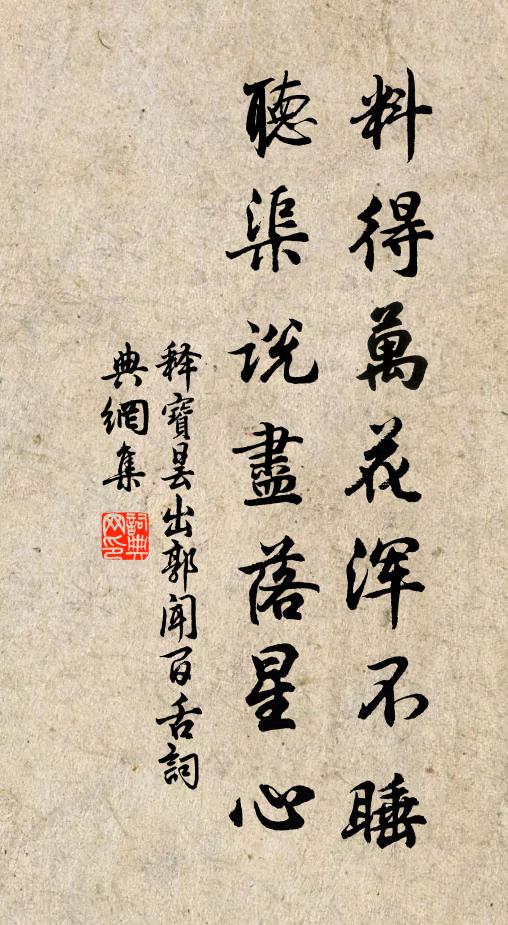 料得萬花浑不睡
聽渠说盡落星心
释寶昙出郭聞百舌詞
典網集
詞典
网印